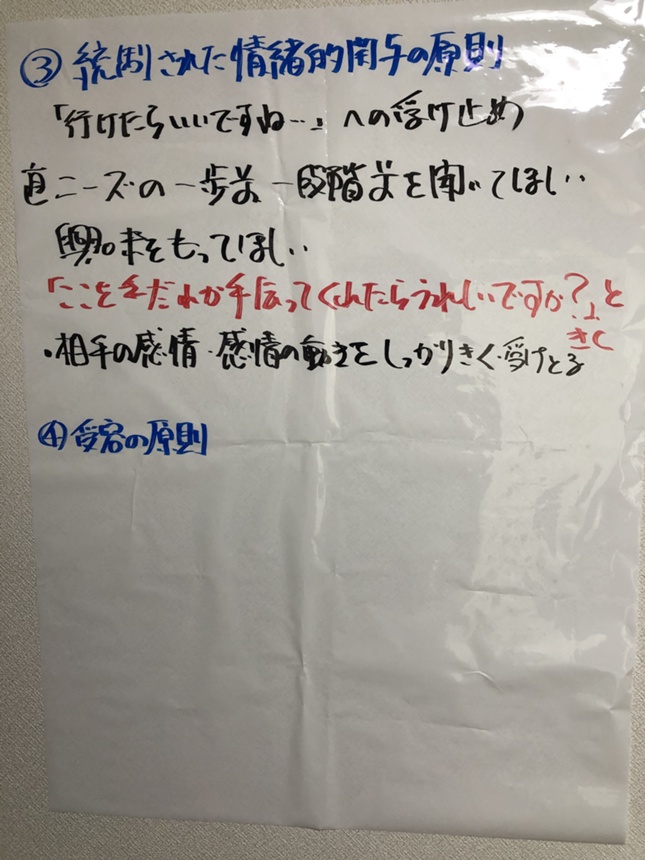 ③ 統制された情緒的関与の原則
「行けたらいいですね…」への受け止め
直ニーズの一歩前 一段階前を聞いてほしい
興味をもってほしい
「ここをだれか手伝ってくれたらうれしいですか?」と
きく
・相手の感情・感情の動きをしっかりきく・受けとる
④ 受容の原則